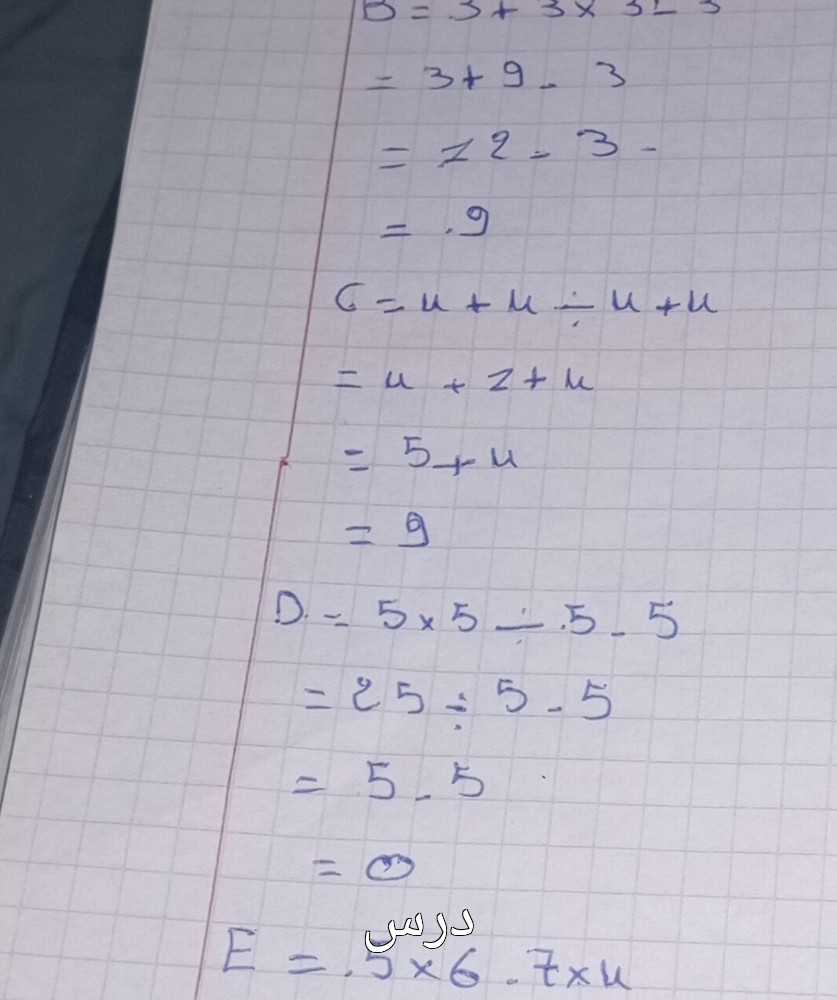 B = 3 + 3 × 3 - 3
= 3 + 9 - 3
= 12 - 3
= 9
C = 4 + 4 ÷ 4 + 4
= 4 + 1 + 4
= 5 + 4
= 9
D = 5 × 5 ÷ 5 - 5
= 25 ÷ 5 - 5
= 5 - 5
= 0
درس
E = 5 × 6 - 7 × 4